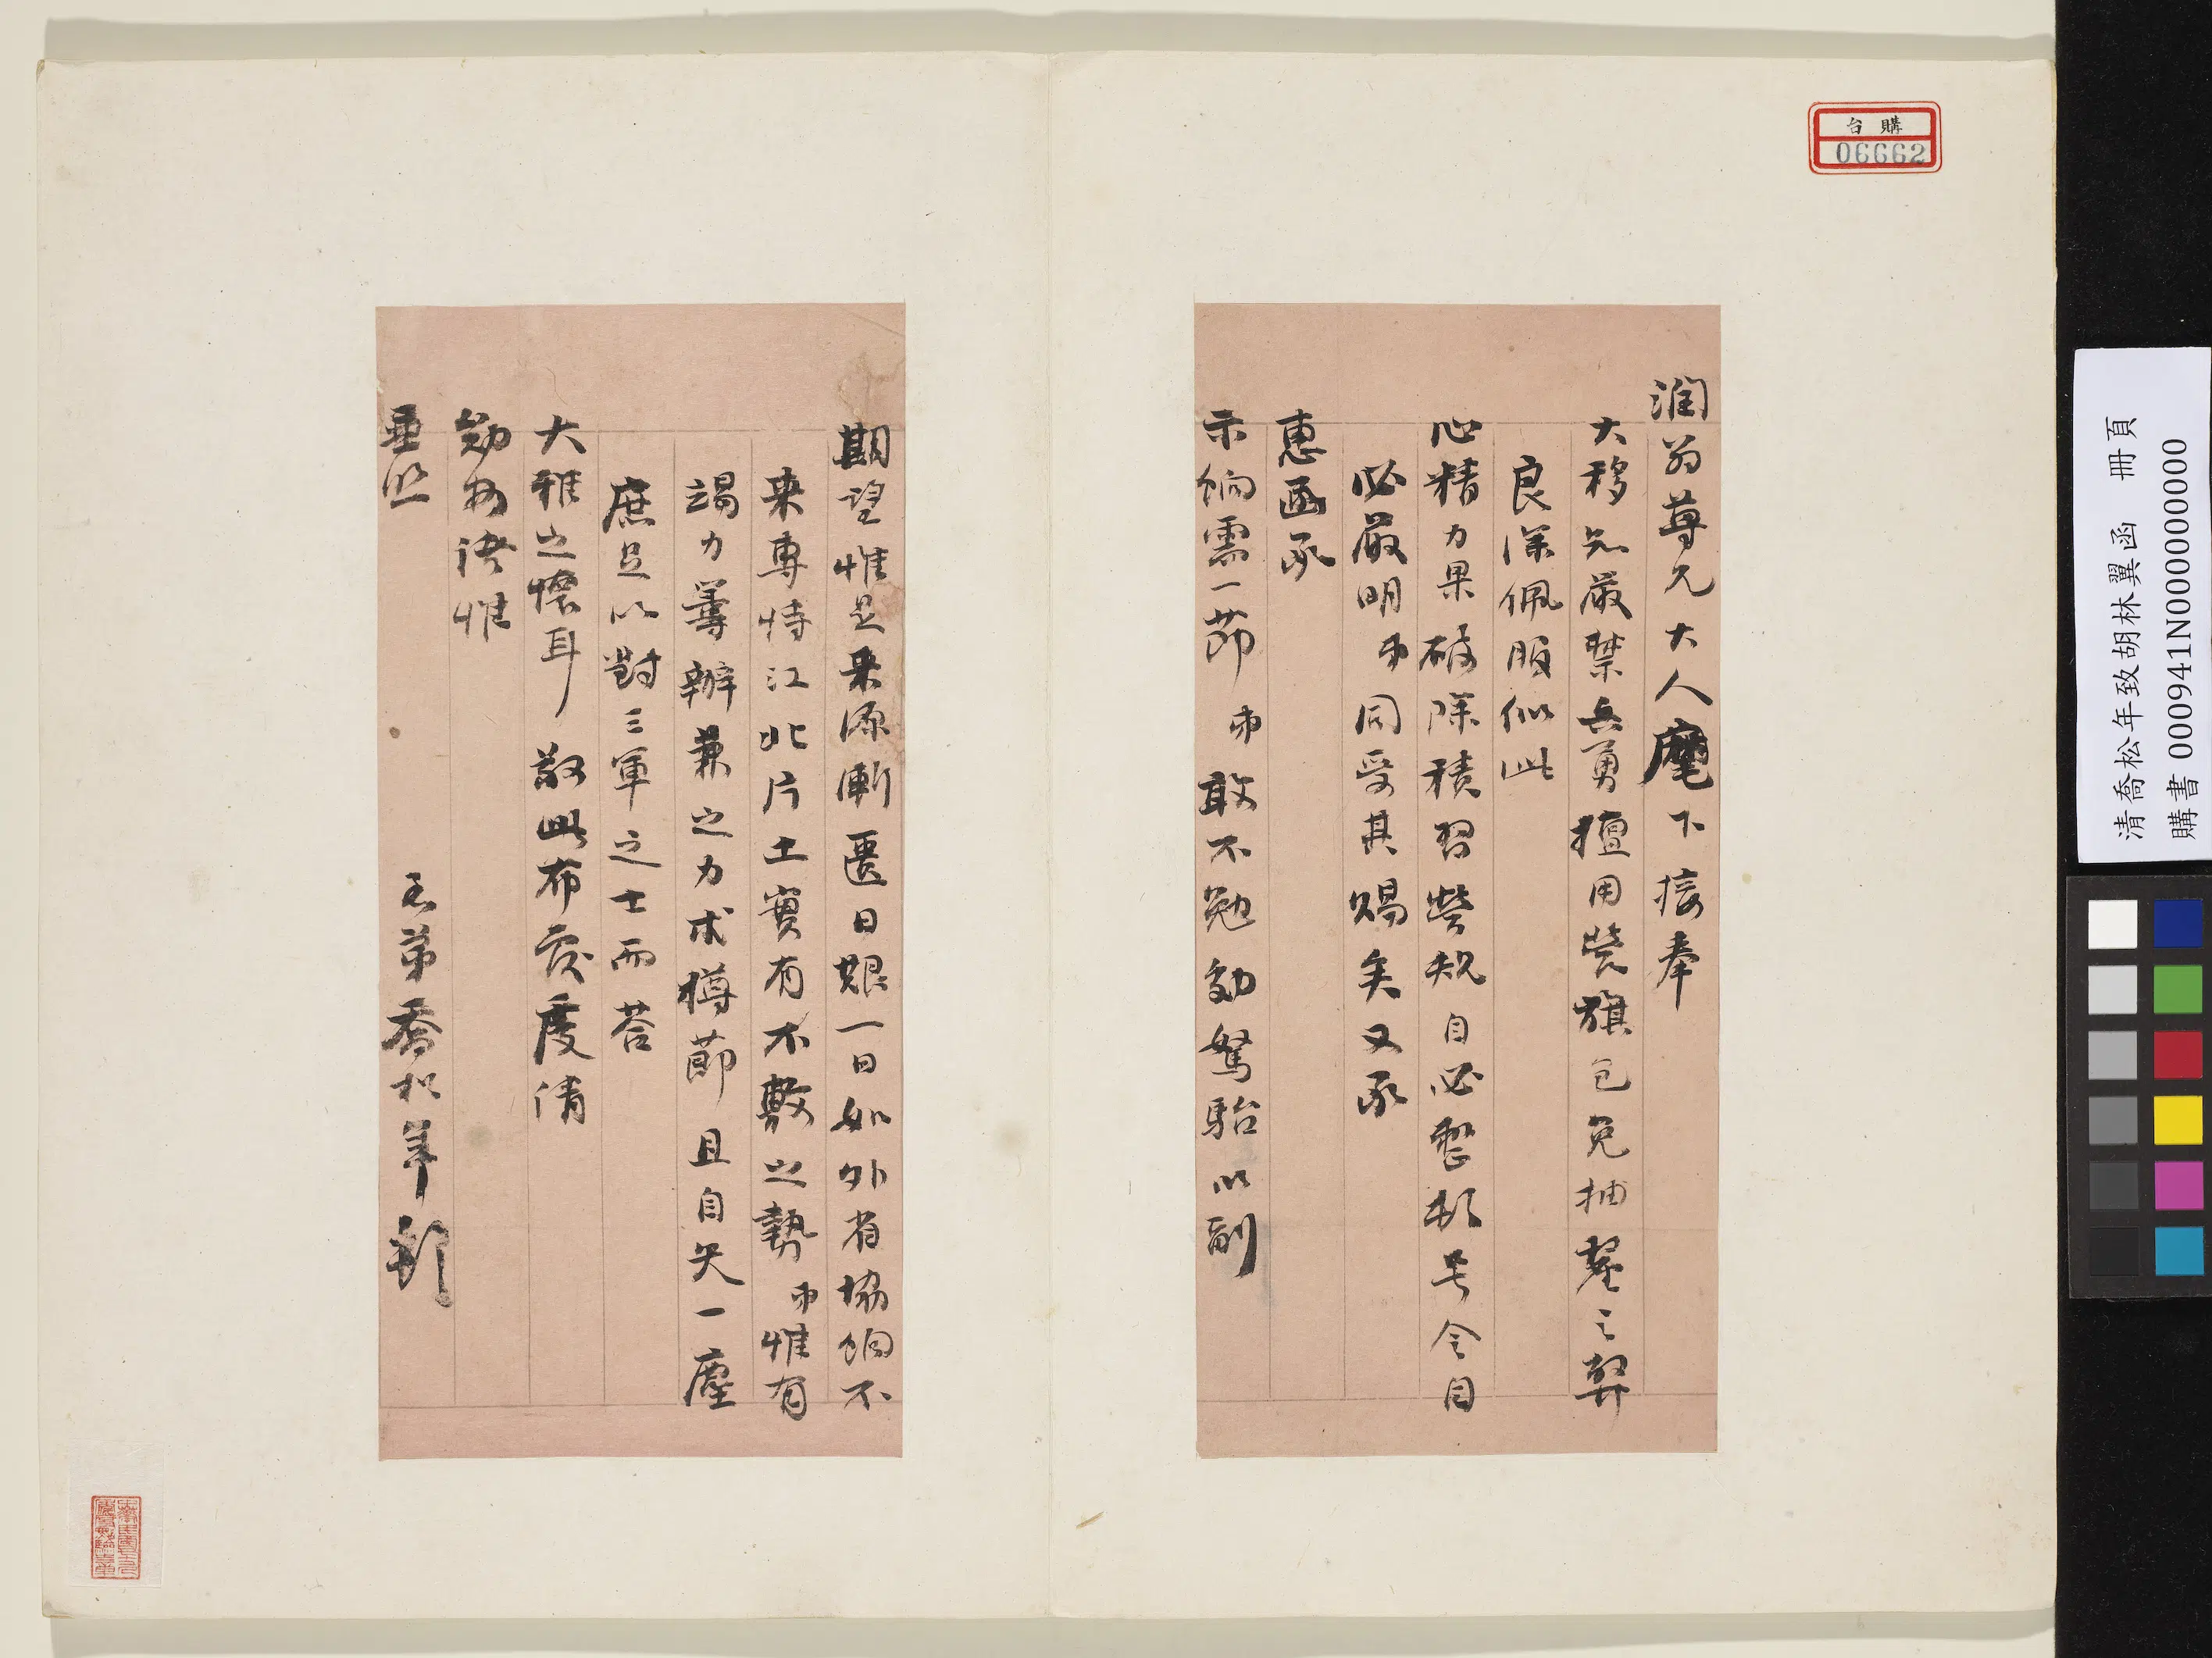 購台
06662
潤翁尊兄大人麾下接奉
大移知嚴禁兵勇擅用營旗包免抽釐之弊
良深佩服似此
心精力果破除積習營規自必整肅号令自
必嚴明弟同受其賜矣又承
惠函承
示餉需一節弟敢不勉効駑駘以副
期望惟是來源漸匱日艱一日如外省協餉不
來專恃江北片土實有不敷之勢弟惟有
竭力籌辦兼之力求樽節且自矢一塵
庶足以對三軍之士而荅
大雅之懷耳 敬此布 度清
勛 惟
垂照
弟喬松年
清喬松年致胡林翼函 冊頁
購書 000941N000000000